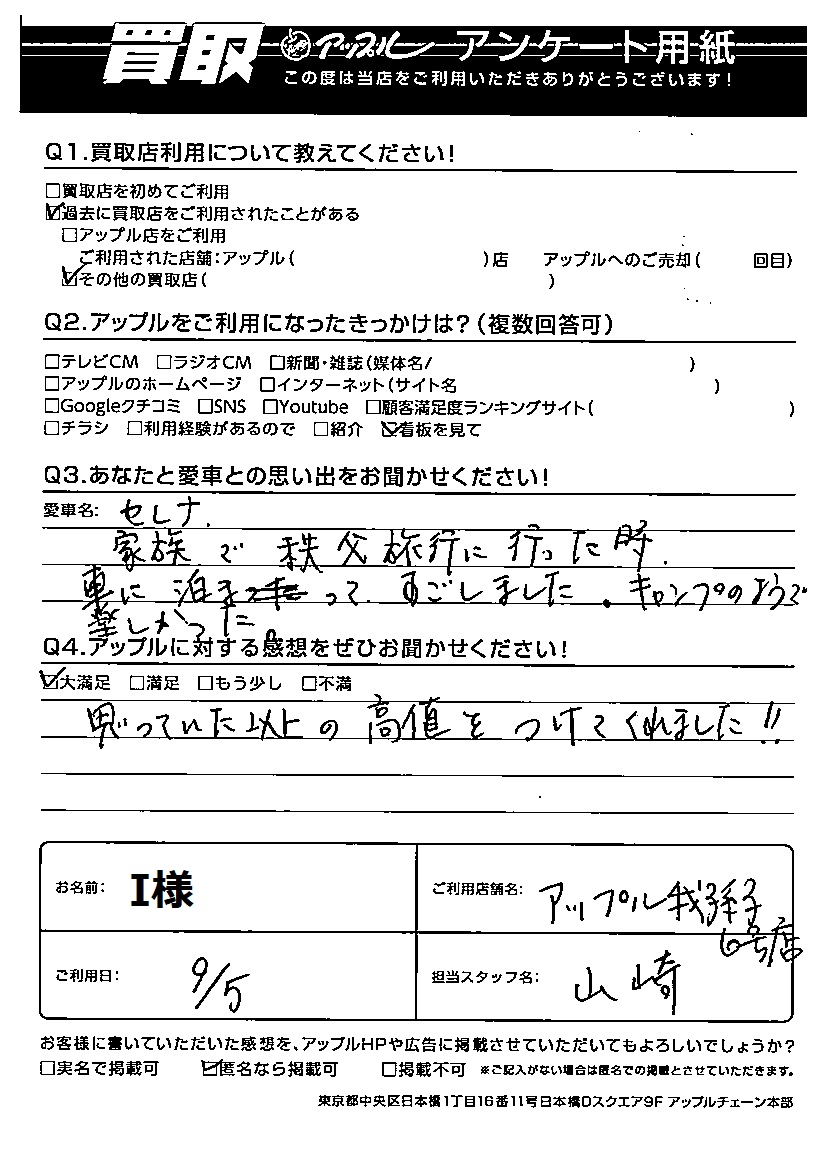 買取 アップル アンケート用紙
この度は当店をご利用いただきありがとうございます!
Q1.買取店利用について教えてください!
□買取店を初めてご利用
☑過去に買取店をご利用されたことがある
□アップル店をご利用
ご利用された店舗:アップル( )店 アップルへのご売却( 回目)
☑その他の買取店( )
Q2.アップルをご利用になったきっかけは?(複数回答可)
□テレビCM □ラジオCM □新聞・雑誌(媒体名/ )
□アップルのホームページ □インターネット(サイト名 )
□Googleクチコミ □SNS □Youtube □顧客満足度ランキングサイト( )
□チラシ □利用経験があるので □紹介 ☑看板を見て
Q3.あなたと愛車との思い出をお聞かせください!
愛車名: セレナ.
家族で秩父旅行に行った時.
車に泊まって すごしました。キャンプのようで
楽しかった。
Q4.アップルに対する感想をぜひお聞かせください!
☑大満足 □満足 □もう少し □不満
思っていた以上の高値をつけてくれました!!
お名前: I様 ご利用店舗名: アップル我孫子
6号店
ご利用日: 9/5 担当スタッフ名: 山崎
お客様に書いていただいた感想を、アップルHPや広告に掲載させていただいてもよろしいでしょうか?
□実名で掲載可 ☑匿名なら掲載可 □掲載不可 ※ご記入がない場合は匿名での掲載とさせていただきます。
東京都中央区日本橋1丁目16番11号日本橋Dスクエア9F アップルチェーン本部